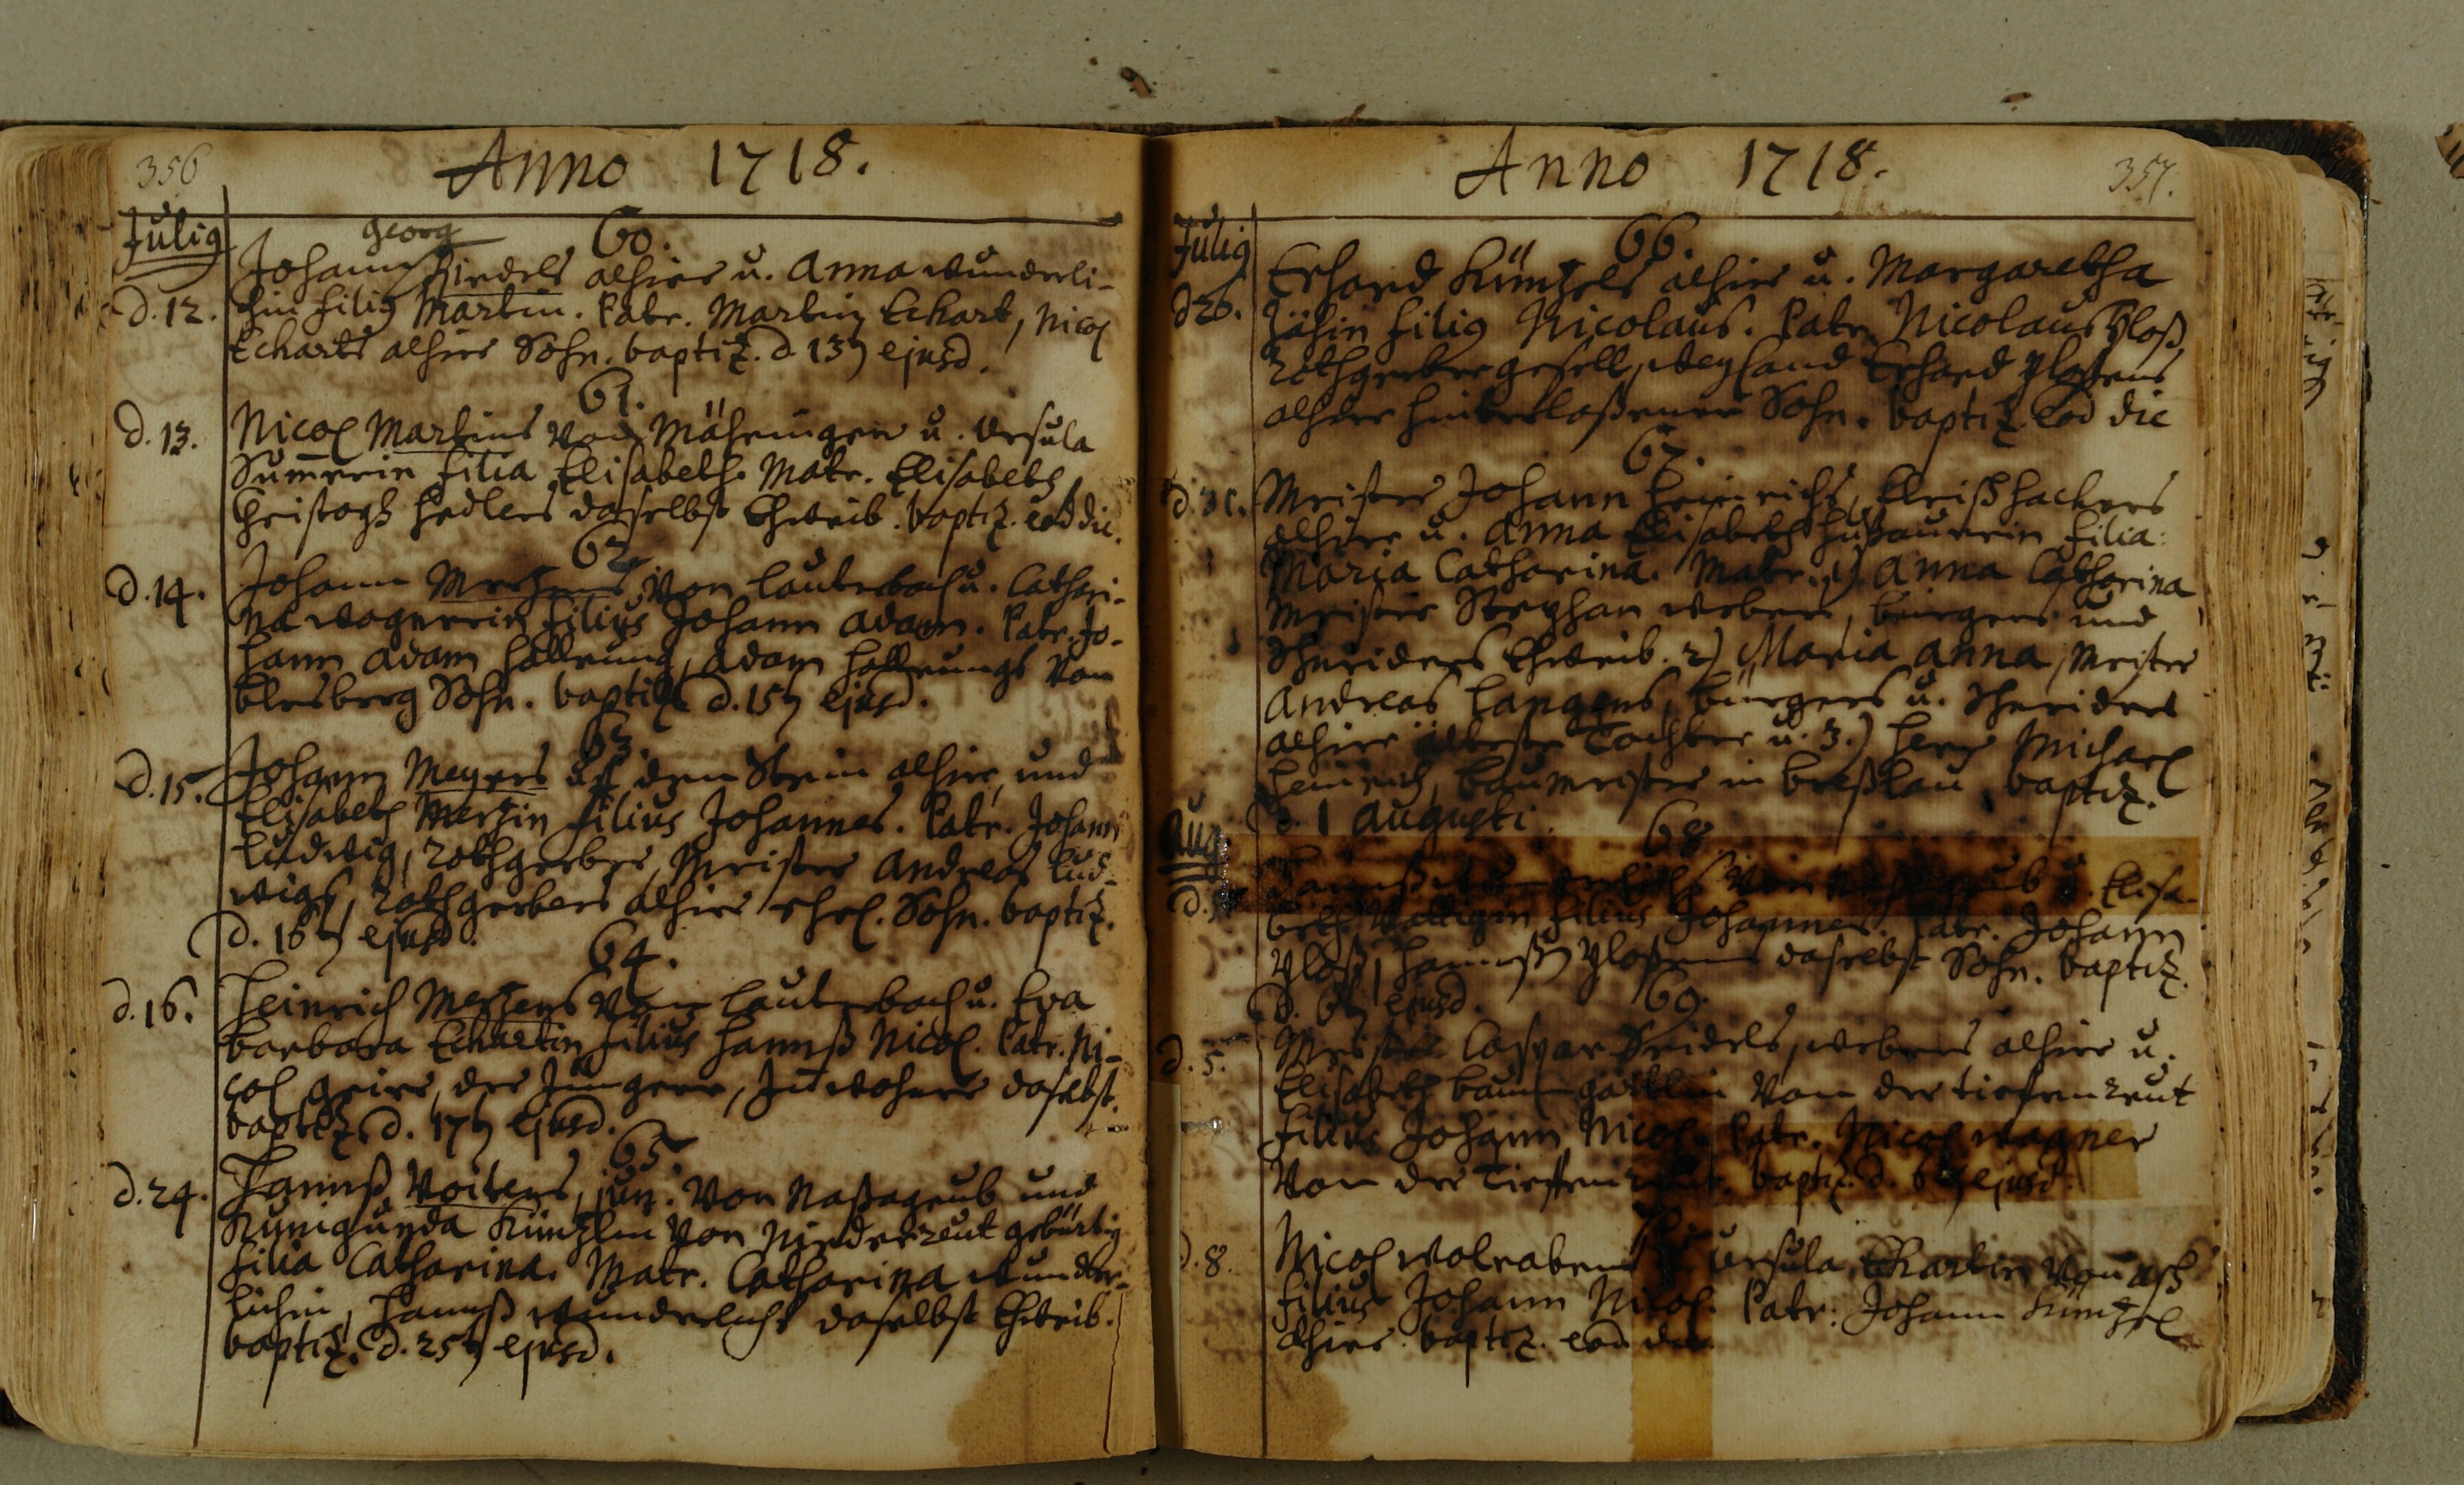 356
Anno 1718.
Julig
60.
georg
Johann Riedels alhier u. Anna Wunderli-
d. 12. chin filig Martin. Patr. Martin Eckart, Nicol
Eckarts alhier Sohn. baptiz. d. 13 ejusd.
61.
d. 13. Nicol Martins von Mähringen u. Ursula
Sum̅erin filia Elisabeth. Matr. Elisabeth,
Christoph Hedlers daselbst Eheweib. baptiz. eod die.
62.
d. 14. Johann Merzens von Lauterbach u. Cathari-
na Wagnerin filius Johann Adam. Patr. Jo-
hann Adam Hollerung, Adam Hollerungs von
Elesberg Sohn. baptiz. d. 15 ejusd.
63.
d. 15. Johann Meyers uf dem Stein alhier, und
Elisabeth Merzin filius Johannes. Patr. Johann
Ludwig, Rothgerber, Meister Andreas Lud-
wigs, Rothgerbers alhier ehel. Sohn. baptiz.
d. 16 ejusd.
64.
d. 16. Heinrich Merzens von Lauterbach u. Eva
Barbara Eckartin filius Hannß Nicol. Patr. Ni-
col Geier, der Jüngere, Inwohner daselbst.
baptiz. d. 17 ejusd.
65.
d. 24. Hannß Voitens, jun. von Naßagrub und
Kunigunda Künzlin von Niederreut gebürtig
filia Catharina. Matr. Catharina Wunder-
lichin, Hannß Wunderlichs daselbst Eheweib.
baptiz. d. 25 ejusd.
Anno 1718.
357.
Julig
66.
Erhard Künzels alhier u. Margaretha
d 26. Jähin filig Nicolaus. Patr. Nicolaus Ploß,
Rothgerbergesell, weyland Erhard Ploßens
alhier hinterlaßener Sohn. baptiz. eod die
67.
d. 31. Meister Johann Heinrichs, Fleischhackers
alhier u. Anna Elisabeth filia:
Maria Catharina. Matr. 1) Anna Catharina
Meister Stephan Webers, Bürgers und
Schneiders Eheweib. 2) Maria Anna, Meister
Andreas Langens, Bürgers u. Schneiders
alhier älteste Tochter u. 3.) Herr Michael
Heinrich, Baumeister in Breßlau, baptiz.
d. 1 Augusti.
Aug.
68.
d. Hannß Wunderlichs von u. Elisa-
beth filius Johannes. Patr. Johann
Ploß, Hannß Ploßens daselbst Sohn. baptiz.
d. 6 ejusd.
69.
d. 5. Meister Caspar Seidels, Webers alhier u.
Elisabeth Baumgärtlin von der Tiefenreut
filius Johann Nicol. Patr. Nicol Wagner
von der Tieffenreut. baptiz. d. 6 ejusd.
d. 8. Nicol Wolraben u. Ursula Eckartin von Asch
filius Johann Nicol. Patr: Johann Künzel
alhier. baptiz. eod die